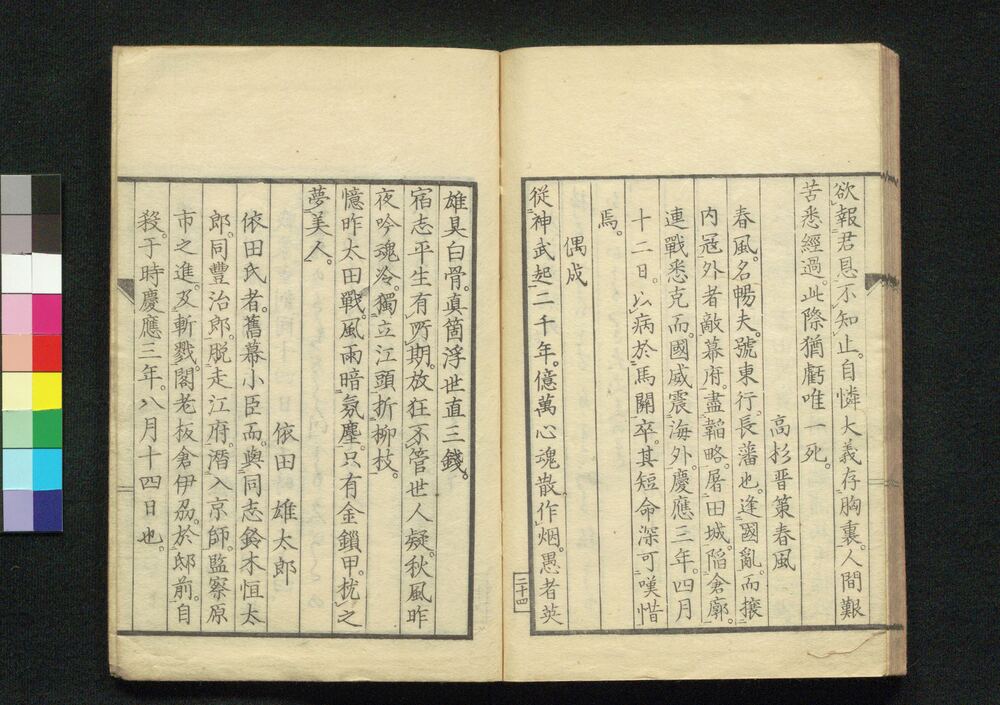 欲報君恩不知止。自憐大義存胸裏。人間艱
苦悉經過。此際猶虧唯一死。
高杉晋策春風
春風。名暢夫。號東行。長藩也。逢國亂。而攘
内冦外者敵幕府。盡韜略。屠田城。陷倉廓。
連戰悉克而。國威震海外。慶應三年。四月
十二日。以病於馬關卒。其短命深可嘆惜
焉。
偶成
從神武起二千年。億萬心魂散作烟。愚者英
二十四
雄具白骨。真箇浮世直三錢。
宿志平生有所期。放狂不管世人疑。秋風昨
夜吟魂冷。獨立江頭折柳枝。
憶昨太田戰。風雨暗氛塵。只有金鎖甲。枕之
夢美人。
依田 雄太郎
依田氏者。舊幕小臣而。與同志鈴木恒太
郎。同豐治郎。脱走江府。潛入京師。監察原
市之進。及斬戮。閣老板倉伊刕。於邸前。自
殺。于時慶應三年。八月十四日也。